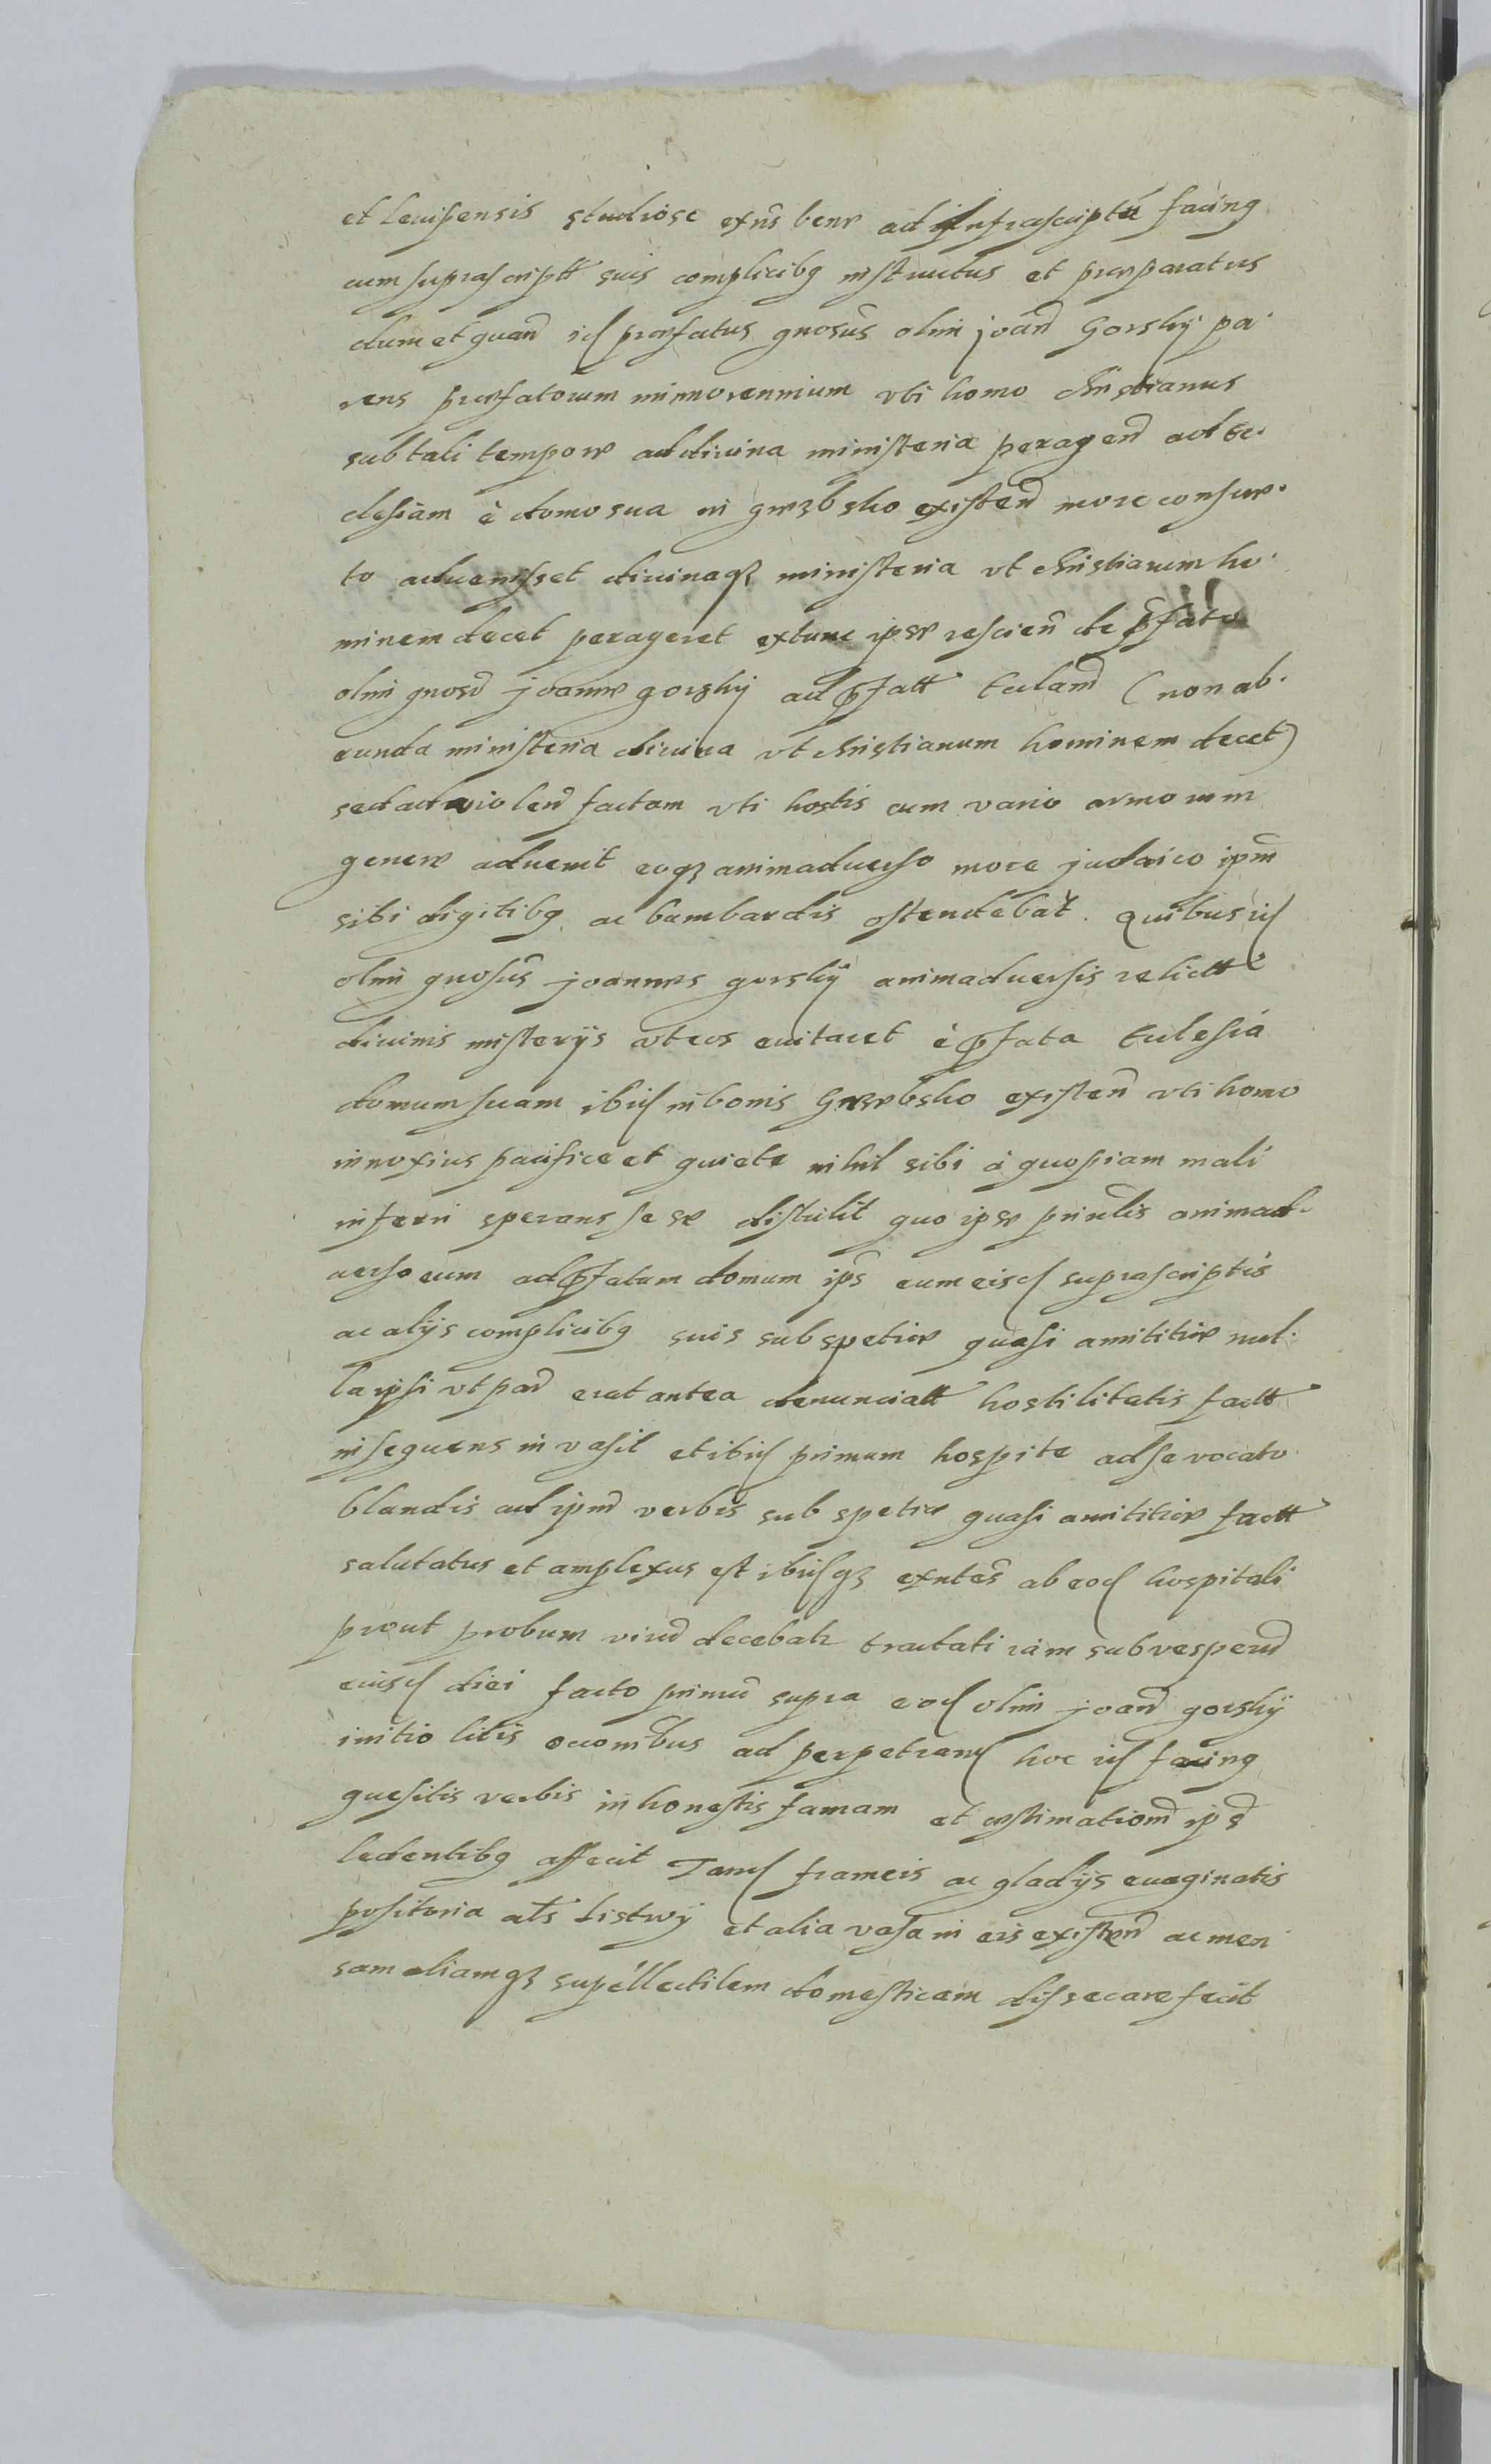 et levisensis studiose exns bene ad infrascriptũ facing
cum suprascriptt suis complicibg instructus et præparatus
dum et quand id præfatus gnosus olim joand Gorskÿ pa
rens præfatorum minnorennium vti homo christianus
sub tali tempore ad divina ministeria peragend ad Ec
clesiam è domo sua in grzębsko existend more consue
to advenisset divinaqz ministeria vt christianum ho
minem decet perageret extunc ipse rescien de pfato
olim gnoso joanne gorskÿ ad pfatt Eclam (non ab
eunda ministeria divina vt christianum hominem decet)
sed ad violend factam vti hostis cum vario armorum
genere advenit eoqz animadverso more judaico ipm
sibi digitibg ac bambardis ostendebat. Quibus id
olim gnosus joannes gorskÿ animadversis relictt
divinis misterÿs vt eos evitaret è pfata Eclesia
domum suam ibid in bonis Grzebsko existen vti homo
innoxius pacifice et quiete nihil sibi à quopiam mali
inferri sperans sese distulit quo ipse prinlis animad
verso eum ad pfatam domum ips cum eisd suprascriptis
ac alÿs complicibg suis sub spetie quasi amititiæ nul
la ipsi vt pad erat antea denunciatt hostilitatis factt
insequens invasit et ibid primum hospite ad se vocato
blandis ad ipm verbis sub spetie quasi amititiæ factt
salutatus et amplexus est ibidqz exntes ab eod hospitali
prout probum virum decebat tractati iam sub vesperum
eiusd diei facto primũ supra eod olim joand gorskÿ
initio litis occonibus ad perpetrand hoc id facing
quesitis verbis inhonestis famam et æstimationem ips
ledentibg affecit Tand frameis ac gladÿs evaginatis
positoria als Listwÿ et alia vasa in eis existend ac men
sam aliamqz supellectilem domesticam dissecare fecit